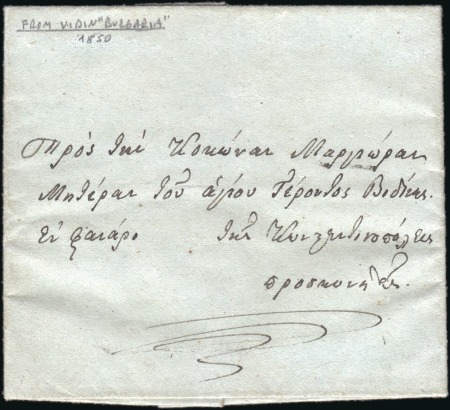 FROM VIDIN "BULGARIA"
1850
Πρός τήν Κοκώναν Μαργιώραν
Μητέραν τοῦ ἁγίου Γέροντος Βιδίνης.
εἰς φανάρι τῆς Κωνσταντινουπόλεως
προσκυνητῶς.